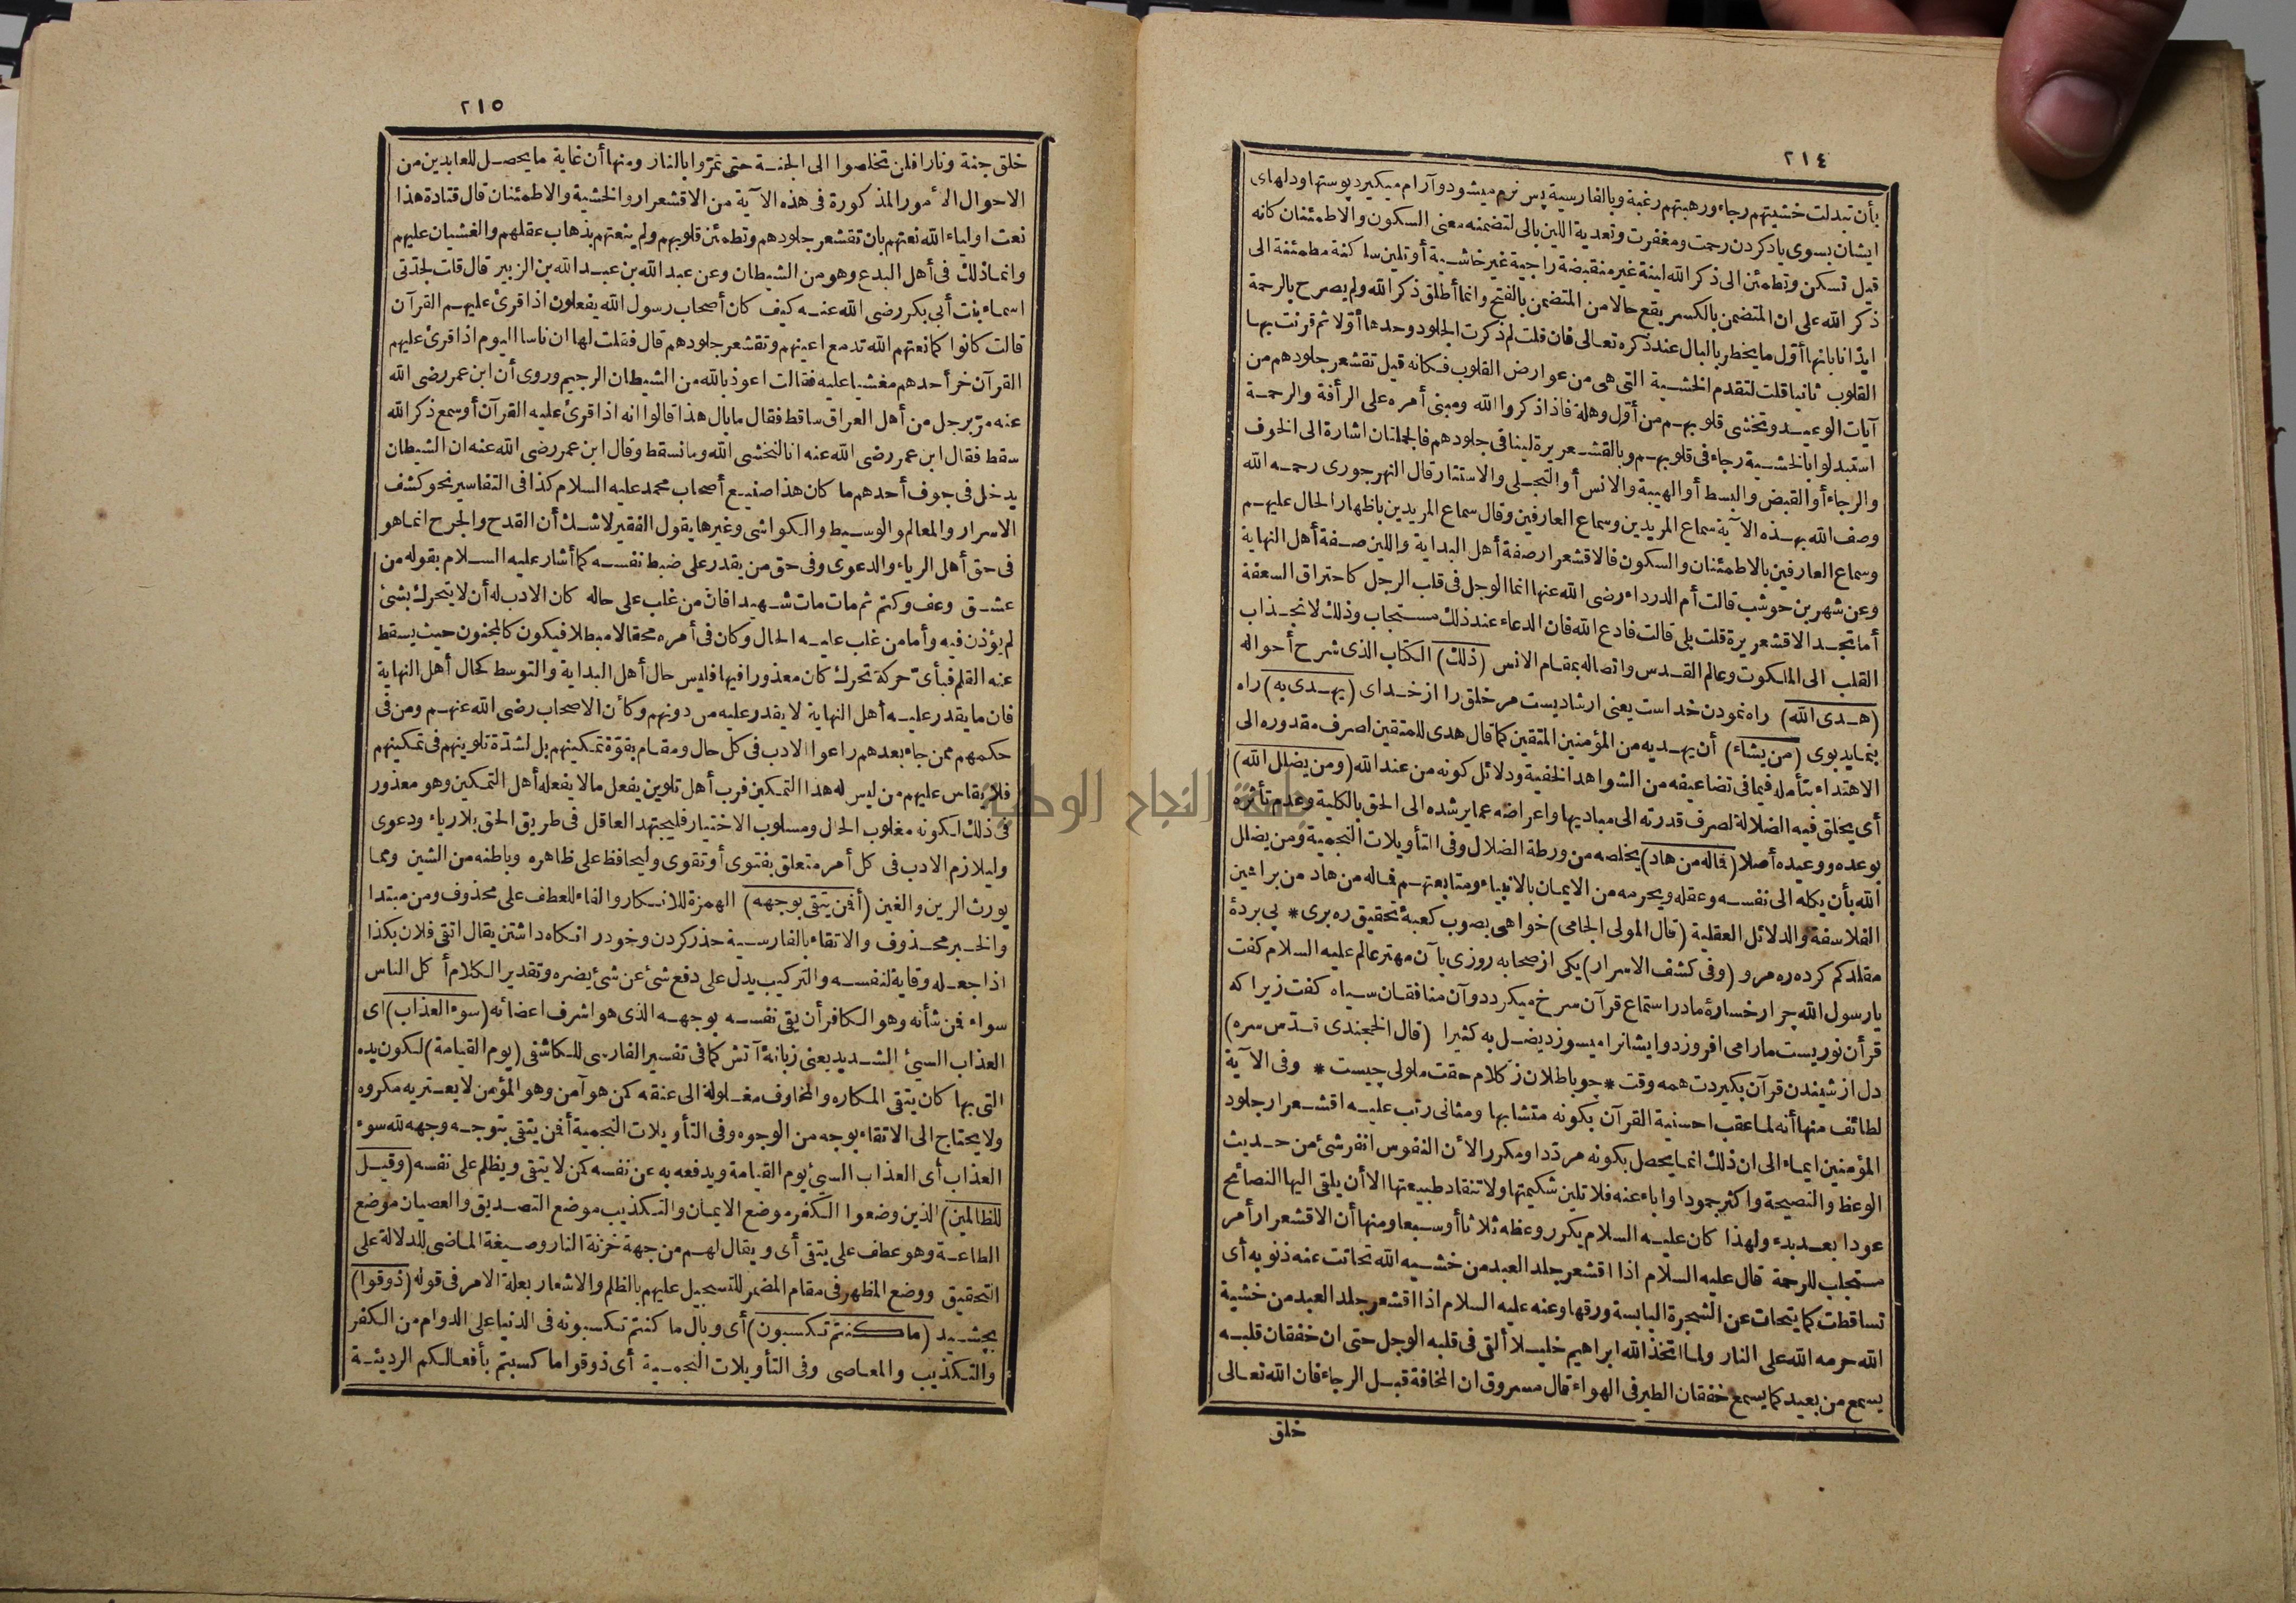 ٢١٤
بأن تبدلت خشيتهم رجاء ورهبتهم رغبة وبالفارسية پس نرم ميشود وآرام ميكيرد پوستها ودلهاى
ايشان بسوى ياد كردن رحمت ومغفرت وتعدية اللين بالى لتضمنه معنى السكون والاطمئنان كانه
قيل تسكن وتطمئن الى ذكر الله لينة غير منقبضة راجية غير خاشية أو تلين ساكنة مطمئنة الى
ذكر الله على ان المتضمن بالكسر يقع حالا من المتضمن بالفتح وانما أطلق ذكر الله ولم يصرح بالرحمة
ايذانا بانها أول ما يخطر بالبال عند ذكره تعالى فان قلت لم ذكرت الجلود وحدها أولا ثم قرنت بها
القلوب ثانيا قلت لتقدم الخشية التى هى من عوارض القلوب فكانه قيل تقشعر جلودهم من
آيات الوعيد وتخشى قلوبهم من أول وهلة فاذا ذكروا الله ومبنى أمره على الرأفة والرحمة
استبدلوا بالخشية رجاء فى قلوبهم وبالقشعريرة لينا فى جلودهم فالجملتان اشارة الى الخوف
والرجاء أو القبض والبسط أو الهيبة والانس أو التجلى والاستتار قال النهرجورى رحمه الله
وصف الله بهذه الآية سماع المريدين وسماع العارفين وقال سماع المريدين باظهار الحال عليهم
وسماع العارفين بالاطمئنان والسكون فالاقشعرار صفة أهل البداية واللين صفة أهل النهاية
وعن شهر بن حوشب قالت أم الدرداء رضى الله عنها انما الوجل فى قلب الرجل كاحتراق السعفة
أما تجد الاقشعريرة قلت بلى قالت فادع الله فان الدعاء عند ذلك مستجاب وذلك لانجذاب
القلب الى الملكوت وعالم القدس واتصاله بمقام الانس (ذلك) الكتاب الذى شرح أحواله
(هدى الله) راه نمودن خداست يعنى ارشاديست مر خلق را از خداى (يهدى به) راه
بنمايد بوى (من يشاء) أن يهديه من المؤمنين المتقين كما قال هدى للمتقين لصرف مقدوره الى
الاهتداء بتأمله فيما فى تضاعيفه من الشواهد الخفية ودلائل كونه من عند الله (ومن يضلل الله)
أى يخلق فيه الضلالة لصرف قدرته الى مباديها واعراضه عما يرشده الى الحق بالكلية وعدم تأثره
بوعده ووعيده أصلا (فماله من هاد) يخلصه من ورطة الضلال وفى التأويلات النجمية ومن يضلل
الله بأن يكله الى نفسه وعقله ويحرمه من الايمان بالانبياء ومتابعتهم فماله من هاد من براهين
الفلاسفة والدلائل العقلية (قال المولى الجامى) خواهى بصوب كعبهٔ تحقيق ره برى * پى بردۀ
مقلد كم كرده ره مرو (وفى كشف الاسرار) يكى از صحابه روزى با آن مهتر عالم عليه السلام كفت
يا رسول الله چرا رخسارۀ ما در استماع قرآن سرخ ميكردد وآن منافقان سياه كفت زيرا كه
قرآن نوريست ما را مى افروزد وايشانرا ميسوزد يضل به كثيرا (قال الخجندى قدس سره)
دل از شنيدن قرآن بكيردت همه وقت * چو باطلان ز كلام حقت ملولى چيست * وفى الآية
لطائف منها أنه لما عقب احسنية القرآن بكونه متشابها ومثانى رتب عليه اقشعرار جلود
المؤمنين ايماء الى ان ذلك انما يحصل بكونه مرددا ومكررا لأن النفوس انفر شىء من حديث
الوعظ والنصيحة واكثر جمودا واباء عنه فلا تلين شكيمتها ولا تنقاد طبيعتها الا أن يلقى اليها النصائح
عودا بعد بدء ولهذا كان عليه السلام يكرر وعظه ثلاثا أو سبعا ومنها أن الاقشعرار أمر
مستجلب للرحمة قال عليه السلام اذا اقشعر جلد العبد من خشية الله تحاتت عنه ذنوبه أى
تساقطت كما يتحات عن الشجرة اليابسة ورقها وعنه عليه السلام اذا اقشعر جلد العبد من خشية
الله حرمه الله على النار ولما اتخذ الله ابراهيم خليلا ألقى فى قلبه الوجل حتى ان خفقان قلبه
يسمع من بعيد كما يسمع خفقان الطير فى الهواء قال مسروق ان المخافة قبل الرجاء فان الله تعالى
خلق
٢١٥
خلق جنة ونارا فلن تخلصوا الى الجنة حتى تمروا بالنار ومنها أن غاية ما يحصل للعابدين من
الاحوال الأمور المذكورة فى هذه الآية من الاقشعرار والخشية والاطمئنان قال قتادة هذا
نعت اولياء الله نعتهم بان تقشعر جلودهم وتطمئن قلوبهم ولم ينعتهم بذهاب عقلهم والغشيان عليهم
وانما ذلك فى أهل البدع وهو من الشيطان وعن عبد الله بن عبد الله بن الزبير قال قلت لجدتى
اسماء بنت أبى بكر رضى الله عنه كيف كان أصحاب رسول الله يفعلون اذا قرئ عليهم القرآن
قالت كانوا كما نعتهم الله تدمع اعينهم وتقشعر جلودهم قال فقلت لها ان ناسا اليوم اذا قرئ عليهم
القرآن خر أحدهم مغشيا عليه فقالت اعوذ بالله من الشيطان الرجيم وروى أن ابن عمر رضى الله
عنه مر برجل من أهل العراق ساقط فقال ما بال هذا قالوا انه اذا قرئ عليه القرآن أو سمع ذكر الله
سقط فقال ابن عمر رضى الله عنه انا لنخشى الله وما نسقط وقال ابن عمر رضى الله عنه ان الشيطان
يدخل فى جوف أحدهم ما كان هذا صنيع أصحاب محمد عليه السلام كذا فى التفاسير نحو كشف
الاسرار والمعالم والوسيط والكواشى وغيرها يقول الفقير لا شك أن القدح والجرح انما هو
فى حق أهل الرياء والدعوى وفى حق من يقدر على ضبط نفسه كما أشار عليه السلام بقوله من
عشق وعف وكتم ثم مات مات شهيدا فان من غلب على حاله كان الادب له أن لا يتحرك بشئ
لم يؤذن فيه وأما من غلب عليه الحال وكان فى أمره محقا لا مبطلا فيكون كالمجنون حيث يسقط
عنه القلم فبأى حركة تحرك كان معذورا فيها فليس حال أهل البداية والتوسط كحال أهل النهاية
فان ما يقدر عليه أهل النهاية لا يقدر عليه من دونهم وكأن الاصحاب رضى الله عنهم ومن فى
حكمهم ممن جاء بعدهم راعوا الادب فى كل حال ومقام بقوة تمكينهم بل لشدة تلوينهم فى تمكينهم
فلا يقاس عليهم من ليس له هذا التمكين فرب أهل تلوين يفعل ما لا يفعله أهل التمكين وهو معذور
فى ذلك لكونه مغلوب الحال ومسلوب الاختيار فليجتهد العاقل فى طريق الحق بلا رياء ودعوى
وليلازم الادب فى كل أمر متعلق بفتوى أو تقوى وليحافظ على ظاهره وباطنه من الشين ومما
يورث الرين والغين (أفمن يتقى بوجهه) الهمزة للانكار والفاء للعطف على محذوف ومن مبتدا
والخبر محذوف والاتقاء بالفارسية حذر كردن وخود را نكاه داشتن يقال اتقى فلان بكذا
اذا جعله وقاية لنفسه والتركيب يدل على دفع شئ عن شئ يضره وتقدير الكلام أكل الناس
سواء فمن شأنه وهو الكافر أن يقى نفسه بوجهه الذى هو اشرف اعضائه (سوء العذاب) اى
العذاب السيئ الشديد يعنى زبانهٔ آتش كما فى تفسير الفارسى للكاشفى (يوم القيامة) لكون يده
التى بها كان يتقى المكاره والمخاوف مغلولة الى عنقه كمن هو آمن وهو المؤمن لا يعتريه مكروه
ولا يحتاج الى الاتقاء بوجه من الوجوه وفى التأويلات النجمية أفمن يتقى بتوجه وجهه لله سوء
العذاب أى العذاب السيئ يوم القيامة ويدفعه به عن نفسه كمن لا يتقى ويظلم على نفسه (وقيل
للظالمين) الذين وضعوا الكفر موضع الايمان والتكذيب موضع التصديق والعصيان موضع
الطاعة وهو عطف على يتقى أى ويقال لهم من جهة خزنة النار وصيغة الماضى للدلالة على
التحقيق ووضع المظهر فى مقام المضمر للتسجيل عليهم بالظلم والاشعار بعلة الامر فى قوله (ذوقوا)
بچشيد (ما كنتم تكسبون) أى وبال ما كنتم تكسبونه فى الدنيا على الدوام من الكفر
والتكذيب والمعاصى وفى التأويلات النجمية أى ذوقوا ما كسبتم بأفعالكم الرديئة
جامعة النجاح الوطنية